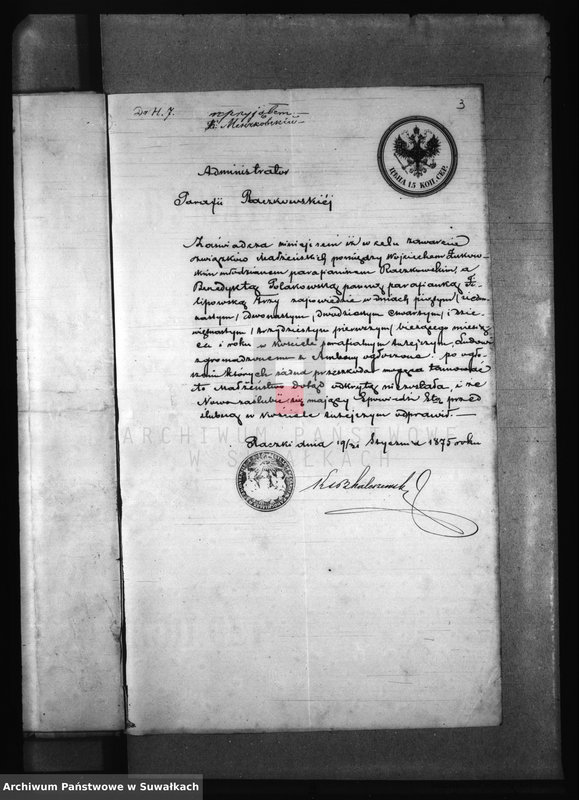 Do N. 7.
3
przyjąłem
ЦѢНА 15 КОП. СЕР.
Administrator
Parafii Raczkowskiéj
Zaświadcza niniejszem iż w celu zawarcia
związku Małżeńskiego pomiędzy Wojciechem
młodzianem parafianinem Raczkowskim, a
Benedyktą Polakowską panną parafianką Fi-
lipowską trzy zapowiedzie w dniach piątym / siedm-
nastym / dwónastym / dwudziestym czwartym / i dzie-
więtnastym / trzydziestym pierwszym / bieżącego miesią-
ca i roku w Kościele parafialnym tutejszym, Ludowi
zgromadzonemu z Ambony ogłoszone: po ogło-
szeniu których żadna przeszkoda mogąca tamować
to Małżeństwo dotąd odkrytą nie została i że
Nowozaślubić się mający Spowiedź Stą przed
ślubną w Kościele tutejszym odprawił.
Raczki dnia 19/31 Stycznia 1875 roku
ARCHIWUM PAŃSTWOWE
W SUWAŁKACH
Archiwum Państwowe w Suwałkach